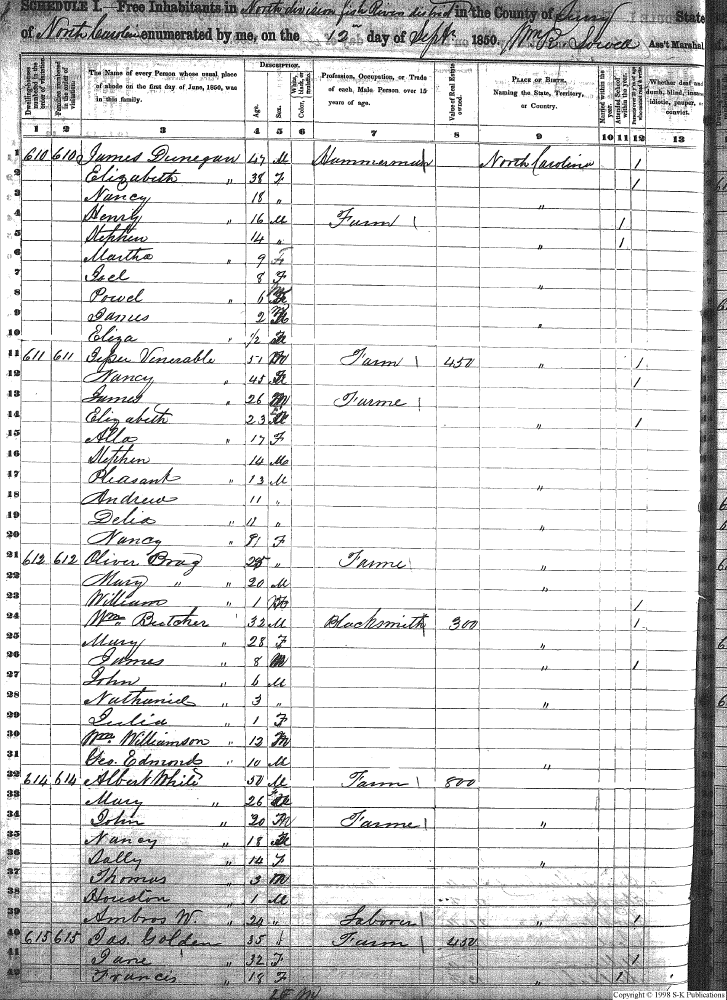 SCHEDULE I.—Free Inhabitants in North division fish River district in the County of Surry State
of North Carolina enumerated by me, on the 12 day of Sept. 1850. Wm R. Ass't Marshal
DESCRIPTION.
Dwelling-houses numbered in the order of visitation.
Families numbered in the order of visitation.
The Name of every Person whose usual place of abode on the first day of June, 1850, was in this family.
Age.
Sex.
Color, White, black, or mulatto.
Profession, Occupation, or Trade of each Male Person over 15 years of age.
Value of Real Estate owned.
PLACE OF BIRTH. Naming the State, Territory, or Country.
Married within the year.
Attended School within the year.
Whether deaf and dumb, blind, insane, idiotic, pauper, or convict.
1 2 3 4 5 6 7 8 9 10 11 12 13
1 610 610 James Dunegan 47 M Hammerman North Carolina 1
2 Elizabeth " 38 F 1
3 Nancy 18 " "
4 Henry " 16 M Farm 1
5 Stephen 14 " " 1
6 Martha " 9 F
7 Joel 8 F "
8 Powel " 6
9 James 2 "
10 Eliza " 1/2
11 611 611 Venerable 51 M Farm 450 " 1
12 Nancy " 45 1
13 James " 26 M Farme
14 Elizabeth 23 " 1
15 17 F
16 Stephen 14 M
17 Pleasant " 13 M "
18 Andrew 11 "
19 Delia " 11 " "
20 Nancy " F
21 612 612 Oliver Brag " Farme "
22 Mary " " 20 M "
23 William " 1 1
24 Wm. Butcher 32 M Blacksmith 300 1
25 Mary " 28 F "
26 James " 8 M " 1
27 John " 6 M
28 Nathaniel " 3 " "
29 Julia " 1 F
30 Wm. Williamson " 12 M
31 Geo. Edmonds " 10 M "
32 614 614 Albert White 50 M Farm 800
33 Mary " 26
34 John " 20 M Farme "
35 Nancy " 18
36 Sally " 14 F "
37 Thomas " 3 M
38 Houston " 1 M
39 Ambros W. " 24 " Laborer " 1
40 615 615 Jas. Golden 35 Farm 450
41 Jane " 32 F 1
42 Francis " 18 F 1
Copyright © 1998 S-K Publications